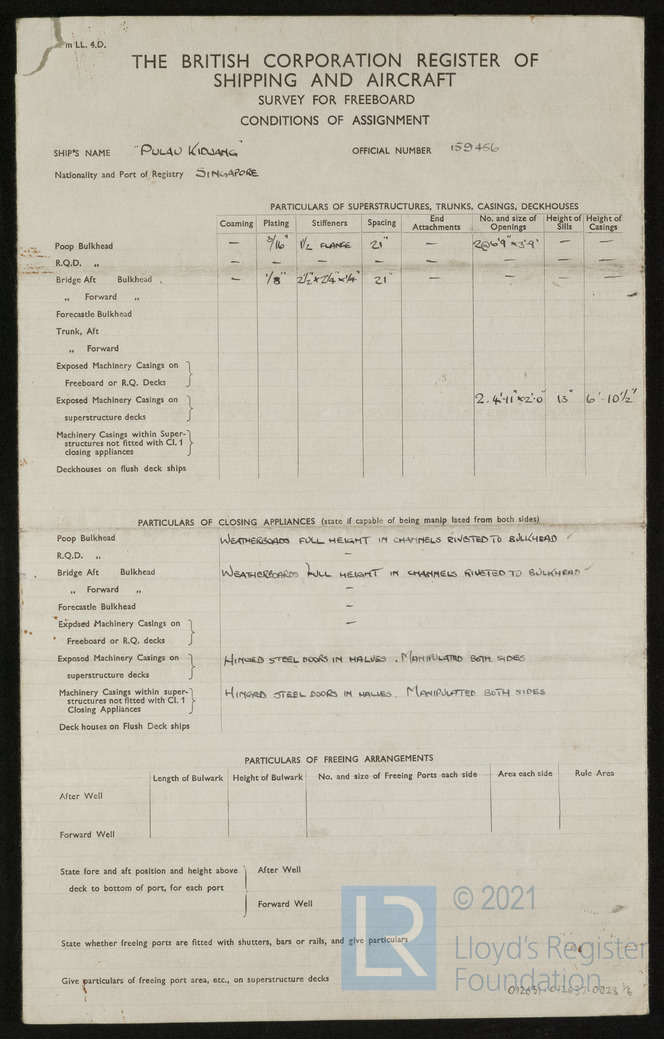 m LL. 4.D.
THE BRITISH CORPORATION REGISTER OF
SHIPPING AND AIRCRAFT
SURVEY FOR FREEBOARD
CONDITIONS OF ASSIGNMENT
SHIP'S NAME "PULAU KIDJANG" OFFICIAL NUMBER 159466
Nationality and Port of Registry SINGAPORE
PARTICULARS OF SUPERSTRUCTURES, TRUNKS, CASINGS, DECKHOUSES
Coaming Plating Stiffeners Spacing End Attachments No. and size of Openings Height of Sills Height of Casings
Poop Bulkhead — 3/16" 1 1/2 FLANGE 21" — 2@6'9"x3'9" — —
R.Q.D. „ — — — — — — — —
Bridge Aft Bulkhead — 1/8" 2 1/2"x2 1/4"x1/4" 21" — — — —
„ Forward „
Forecastle Bulkhead
Trunk, Aft
„ Forward
Exposed Machinery Casings on
Freeboard or R.Q. Decks
Exposed Machinery Casings on 2. 4'-11"x2'-0" 15" 6'-10 1/2"
superstructure decks
Machinery Casings within Super-
structures not fitted with Cl. 1
closing appliances
Deckhouses on flush deck ships
PARTICULARS OF CLOSING APPLIANCES (state if capable of being manip lated from both sides)
Poop Bulkhead WEATHERBOARDS FULL HEIGHT IN CHANNELS RIVETED TO BULKHEAD ✓
R.Q.D. „ —
Bridge Aft Bulkhead WEATHERBOARDS FULL HEIGHT IN CHANNELS RIVETED TO BULKHEAD ✓
„ Forward „ —
Forecastle Bulkhead —
Exposed Machinery Casings on —
Freeboard or R.Q. decks
Exposed Machinery Casings on HINGED STEEL DOORS IN HALVES. MANIPULATED BOTH SIDES
superstructure decks
Machinery Casings within super- HINGED STEEL DOORS IN HALVES. MANIPULATTED BOTH SIDES
structures not fitted with Cl. 1
Closing Appliances
Deck houses on Flush Deck ships
PARTICULARS OF FREEING ARRANGEMENTS
Length of Bulwark Height of Bulwark No. and size of Freeing Ports each side Area each side Rule Area
After Well
Forward Well
State fore and aft position and height above After Well
deck to bottom of port, for each port
Forward Well
State whether freeing ports are fitted with shutters, bars or rails, and give particulars
Give particulars of freeing port area, etc., on superstructure decks
LR
© 2021
Lloyd's Register
Foundation